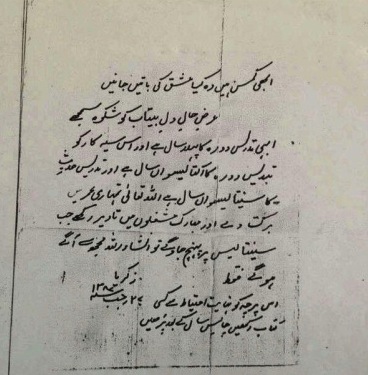 ابھی کمسن ہیں وہ کیا عشق کی باتیں جانیں
عرض حال دل بیتاب کو شکوہ سمجھے
ابھی تدریس دورہ کا پہلا سال ہے اور اس سیہ کار کو
تدریس دورہ کا اکتالیسواں سال ہے اور تدریس حدیث
کا سینتالیسواں سال ہے اللہ تعالیٰ تمہاری عمر میں
برکت دے اور مبارک مشغلوں میں تادیر رکھے جب
سینتالیس پر پہنچ جاؤگے تو انشاء اللہ مجھ سے آگے
ہوگے فقط
زکریا
۲۷ رجب ۱۳۸۷
اس پرچہ کو نہایت احتیاط سے کسی
کتاب میں رکھیں چالیس سال کے بعد پڑھیں